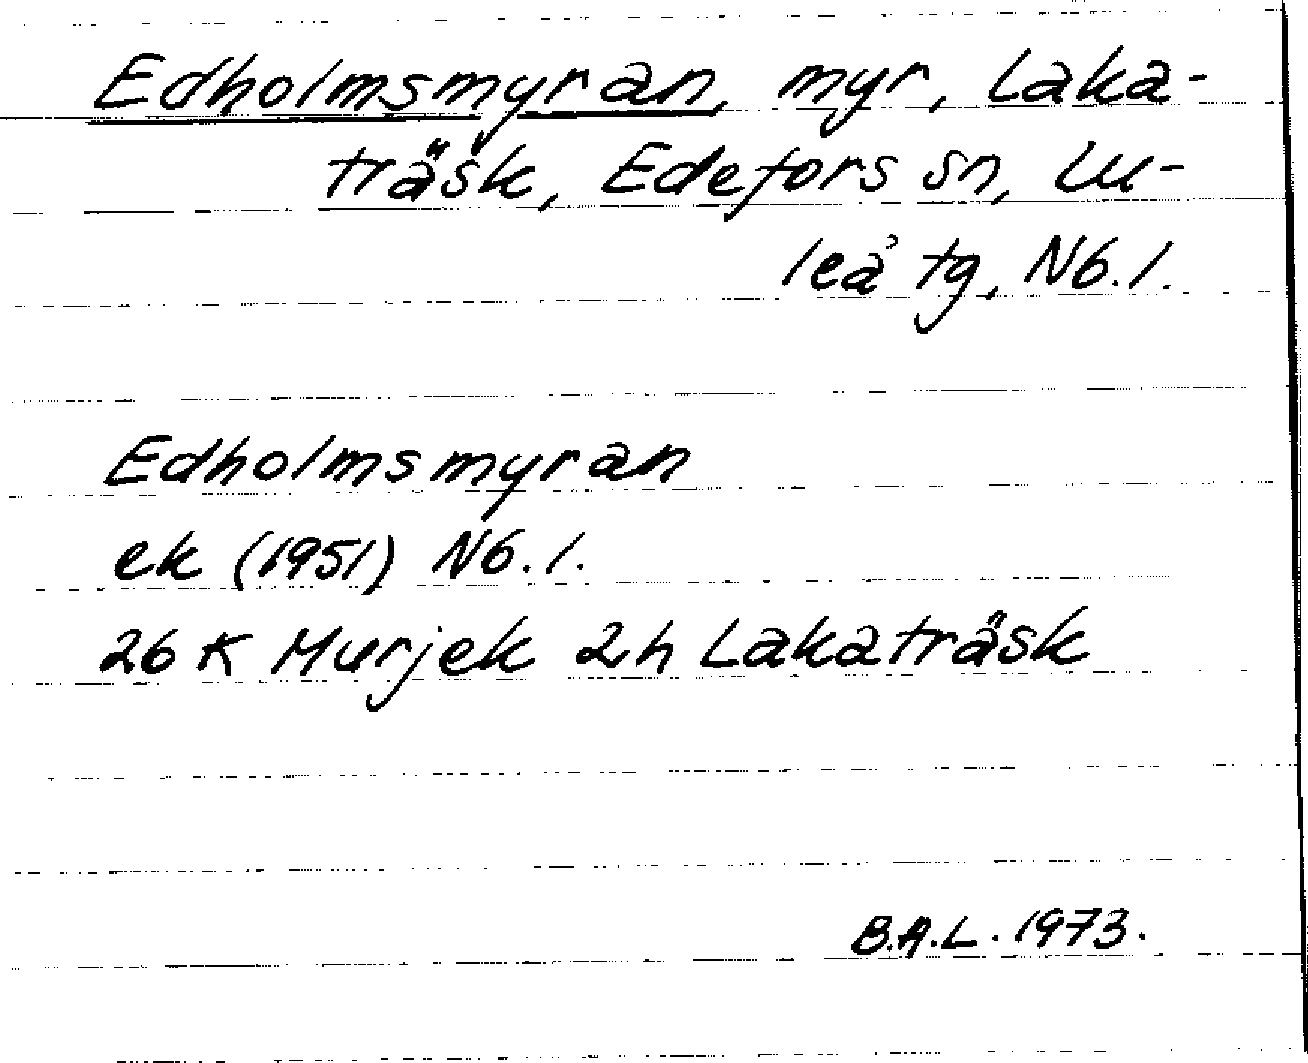 Edholmsmyran, myr, Laka-
träsk, Edefors sn, Lu-
leå tg, Nb.l.
Edholmsmyran
ek (1951) Nb.l.
26 K Murjek 2h Lakaträsk
B.A.L. 1973.